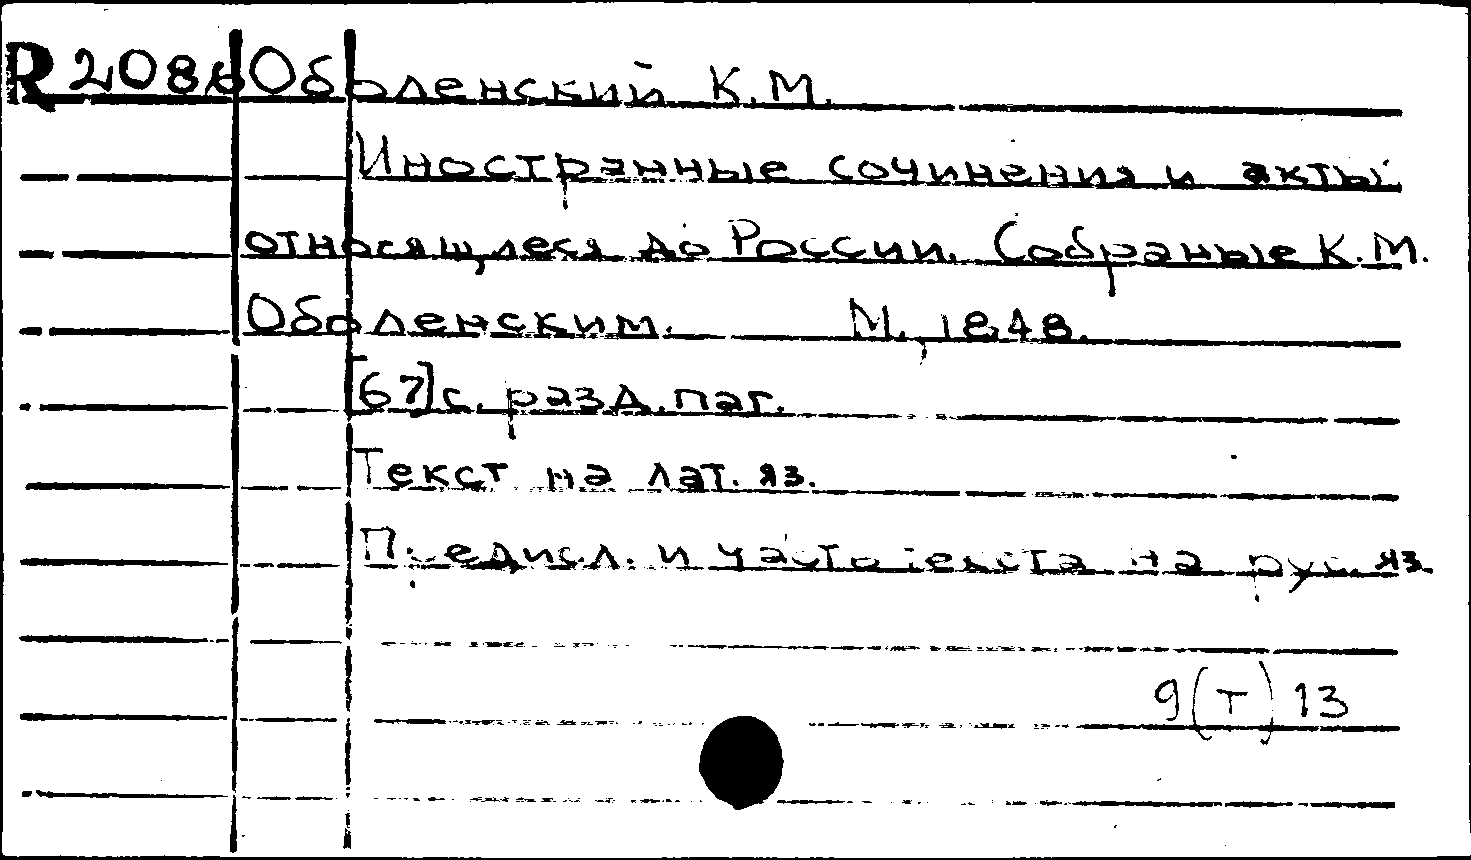 R 2086 Оболенский К.М.
Иностранные сочинения и акты
относящиеся до России. Собраные К.М.
Оболенским. М., 1848.
[67] с. разд. паг.
Текст на лат. яз.
Предисл. и часть текста на рус. яз.
9(т)13